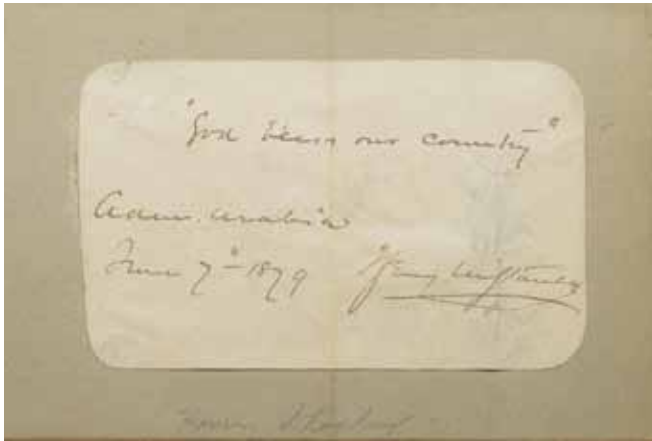 "God bless our country"
Aden. Arabia
June 7th 1879
Henry M Stanley